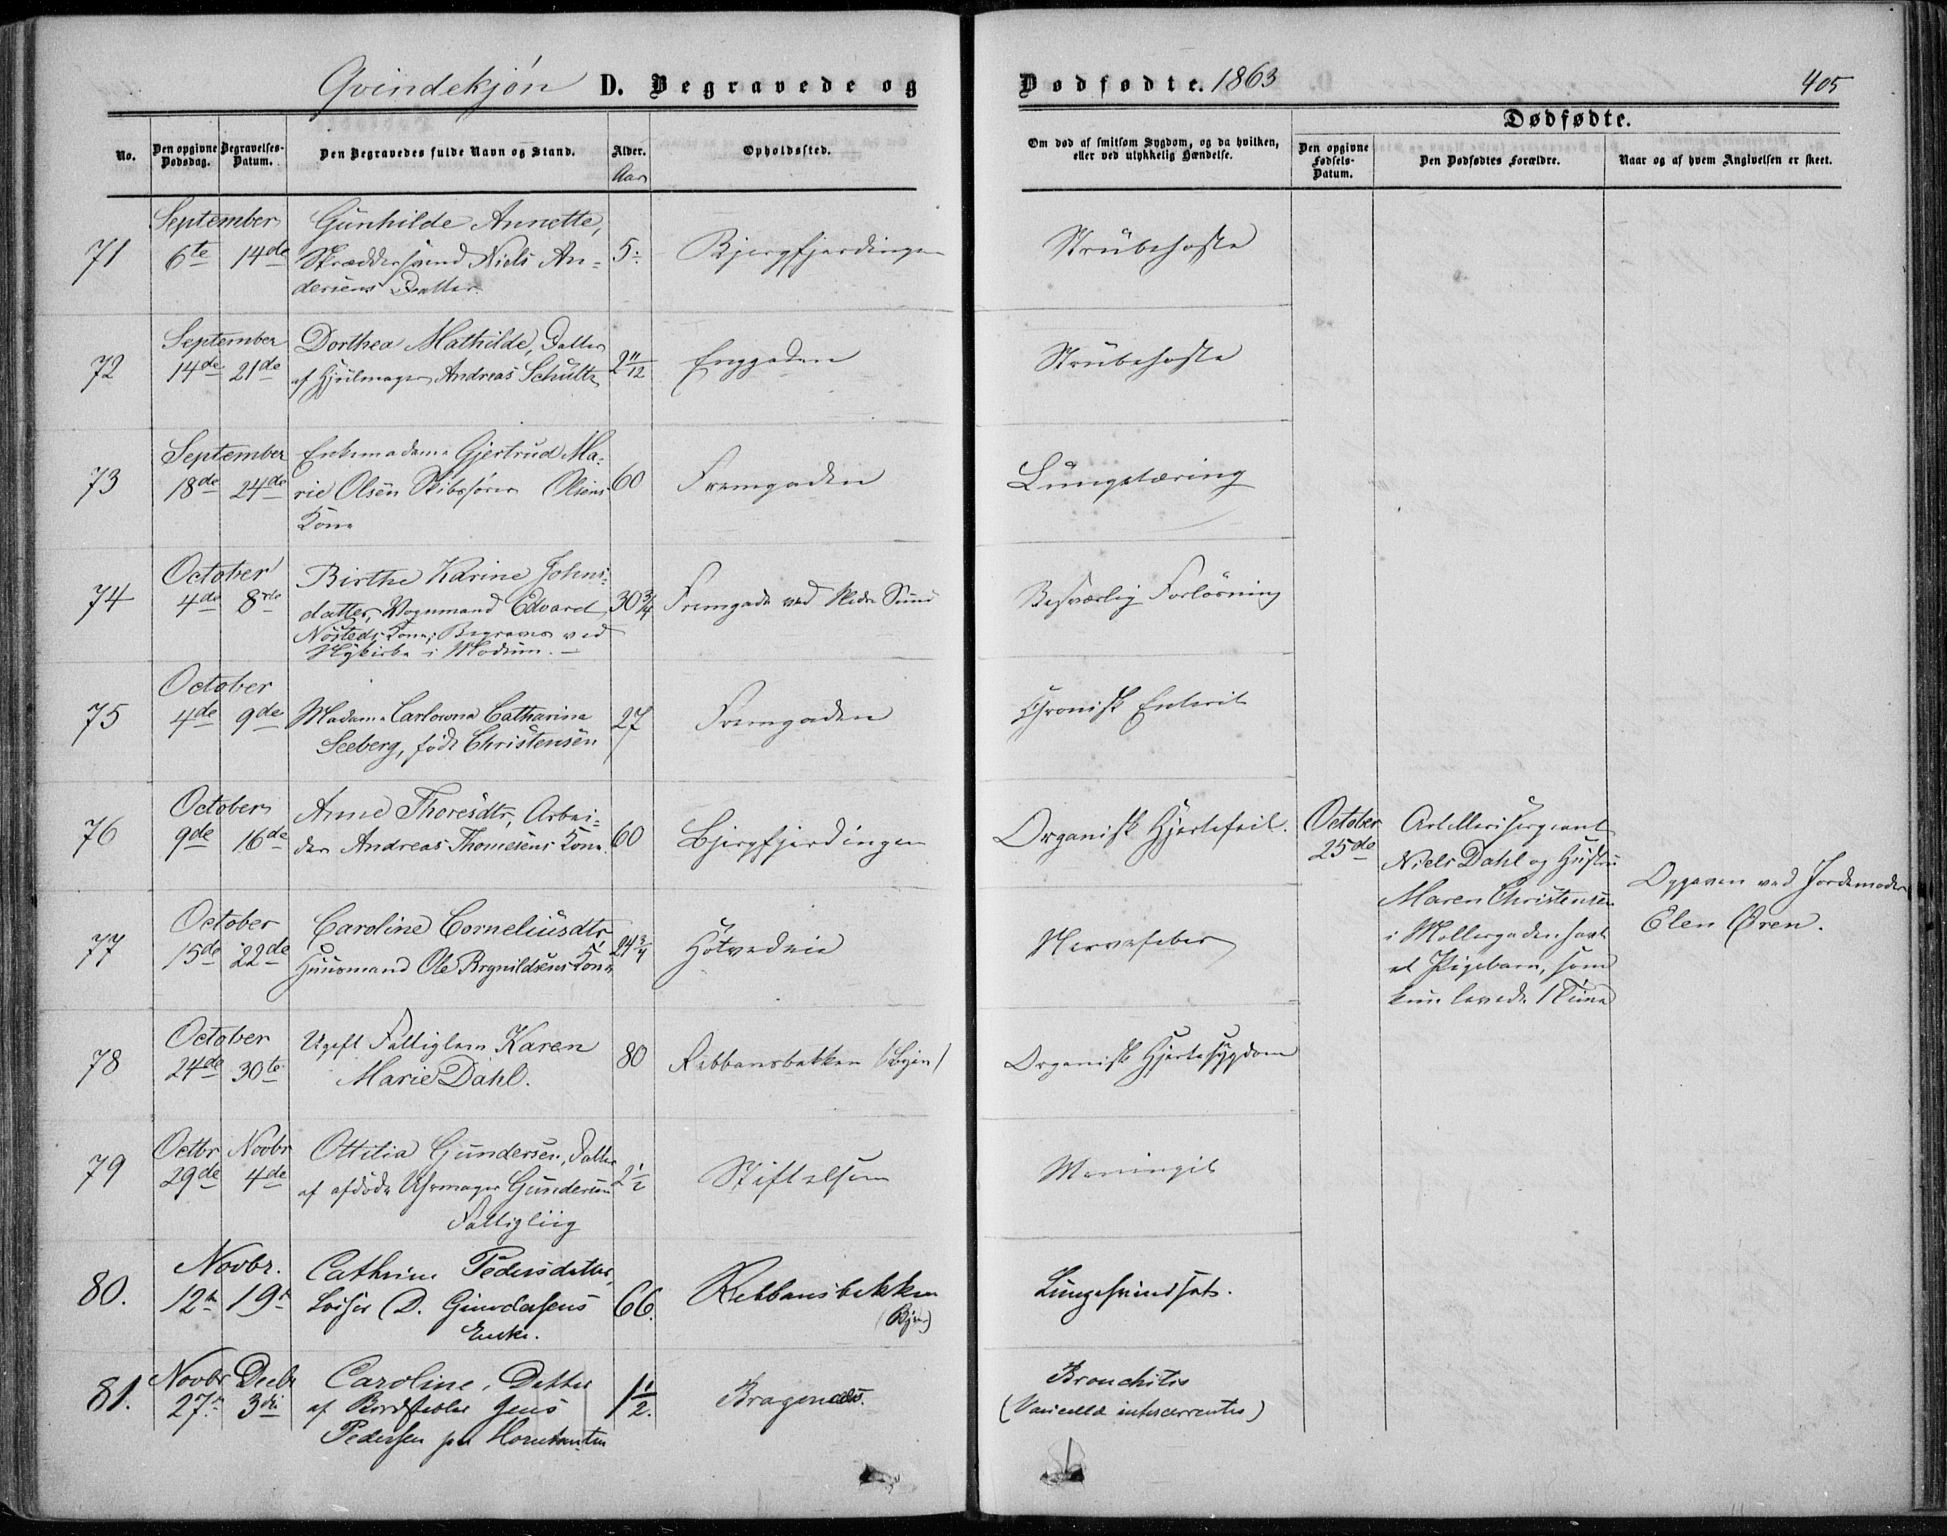 Qvindekjøn D. Begravede og Dødfødte. 1863 405
No. Den opgivne Dødsdag. Begravelses-Datum. Den Begravedes fulde Navn og Stand. Alder. Aar Opholdssted.
Om død af smitsom Sygdom, og da hvilken, eller ved ulykkelig Hændelse.
Dødfødte.
Den opgivne Fødsels-Datum. Den Dødfødtes Forældre. Naar og af hvem Angivelsen er skeet.
September Gunhilde Annette,
71 6te 14de Skræddersvend Niels An= 5 Bjergfjerdingen Strubehoste
dersens Datter.
September Dorthea Mathilde, Datter
72 14de 21de af Hjulmager Andreas Schultz 2 11/12 Enggaden Strubehoste
September Enkemadame Gjertrud Ma=
73 18de 24de rie Olsen Skibsfører Olsens 60 Fremgaden Lungetæring
Kone
October Birthe Karine Johns=
74 4de 8de datter, Vognmand Edvard 30 3/4 Fremgade ved Nedre Sund Besværlig Forløsning
Nøsteds Kone; Begraves ved
Nykirke i Modum. —
October
75 4de 9de Madame Carlowna Catharina 27 Fremgaden Chronisk Enterit
Seeberg, født Christensen
October Anne Thoresdtr, Arbei=
76 9de 16de der Andreas Thomesens Kone 60 Bjergfjerdingen Organisk Hjertefeil.
October 25de
Artillerisergeant
Niels Dahl og Hustru
Maren Christensen
i Møllergaden havt
et Pigebarn, som
kun levede 1 Time
Opgaven ved Jordemoder
Elen Øren.
October Caroline Corneliusdtr,
77 15de 22de Huusmand Ole Brynildsens Kone 24 3/4 Hotvedeie Nervefeber
October Ugift Fattiglem Karen
78 24de 30te Marie Dahl. 80 Ribbansbakken (Byen) Organisk Hjertesygdom
Octbr Novbr Ottilia Gundersen, Datter
79 29de 4de af afdøde Uhrmager Gundersen 2 1/2 Stiftelsen Meningit
Fattiglig
Novbr. Cathrine Pedersdatter,
80. 12te 19de D. Gundersens 66. Ribbansbakken Lungesvindsot.
Enke. (Byen)
Novbr Decbr Caroline, Datter Bronchitis
81. 27de 3die af Bordskibler Jens 1 1/2. Bragernæs. (Varicella intercurrentes)
Pedersen paa